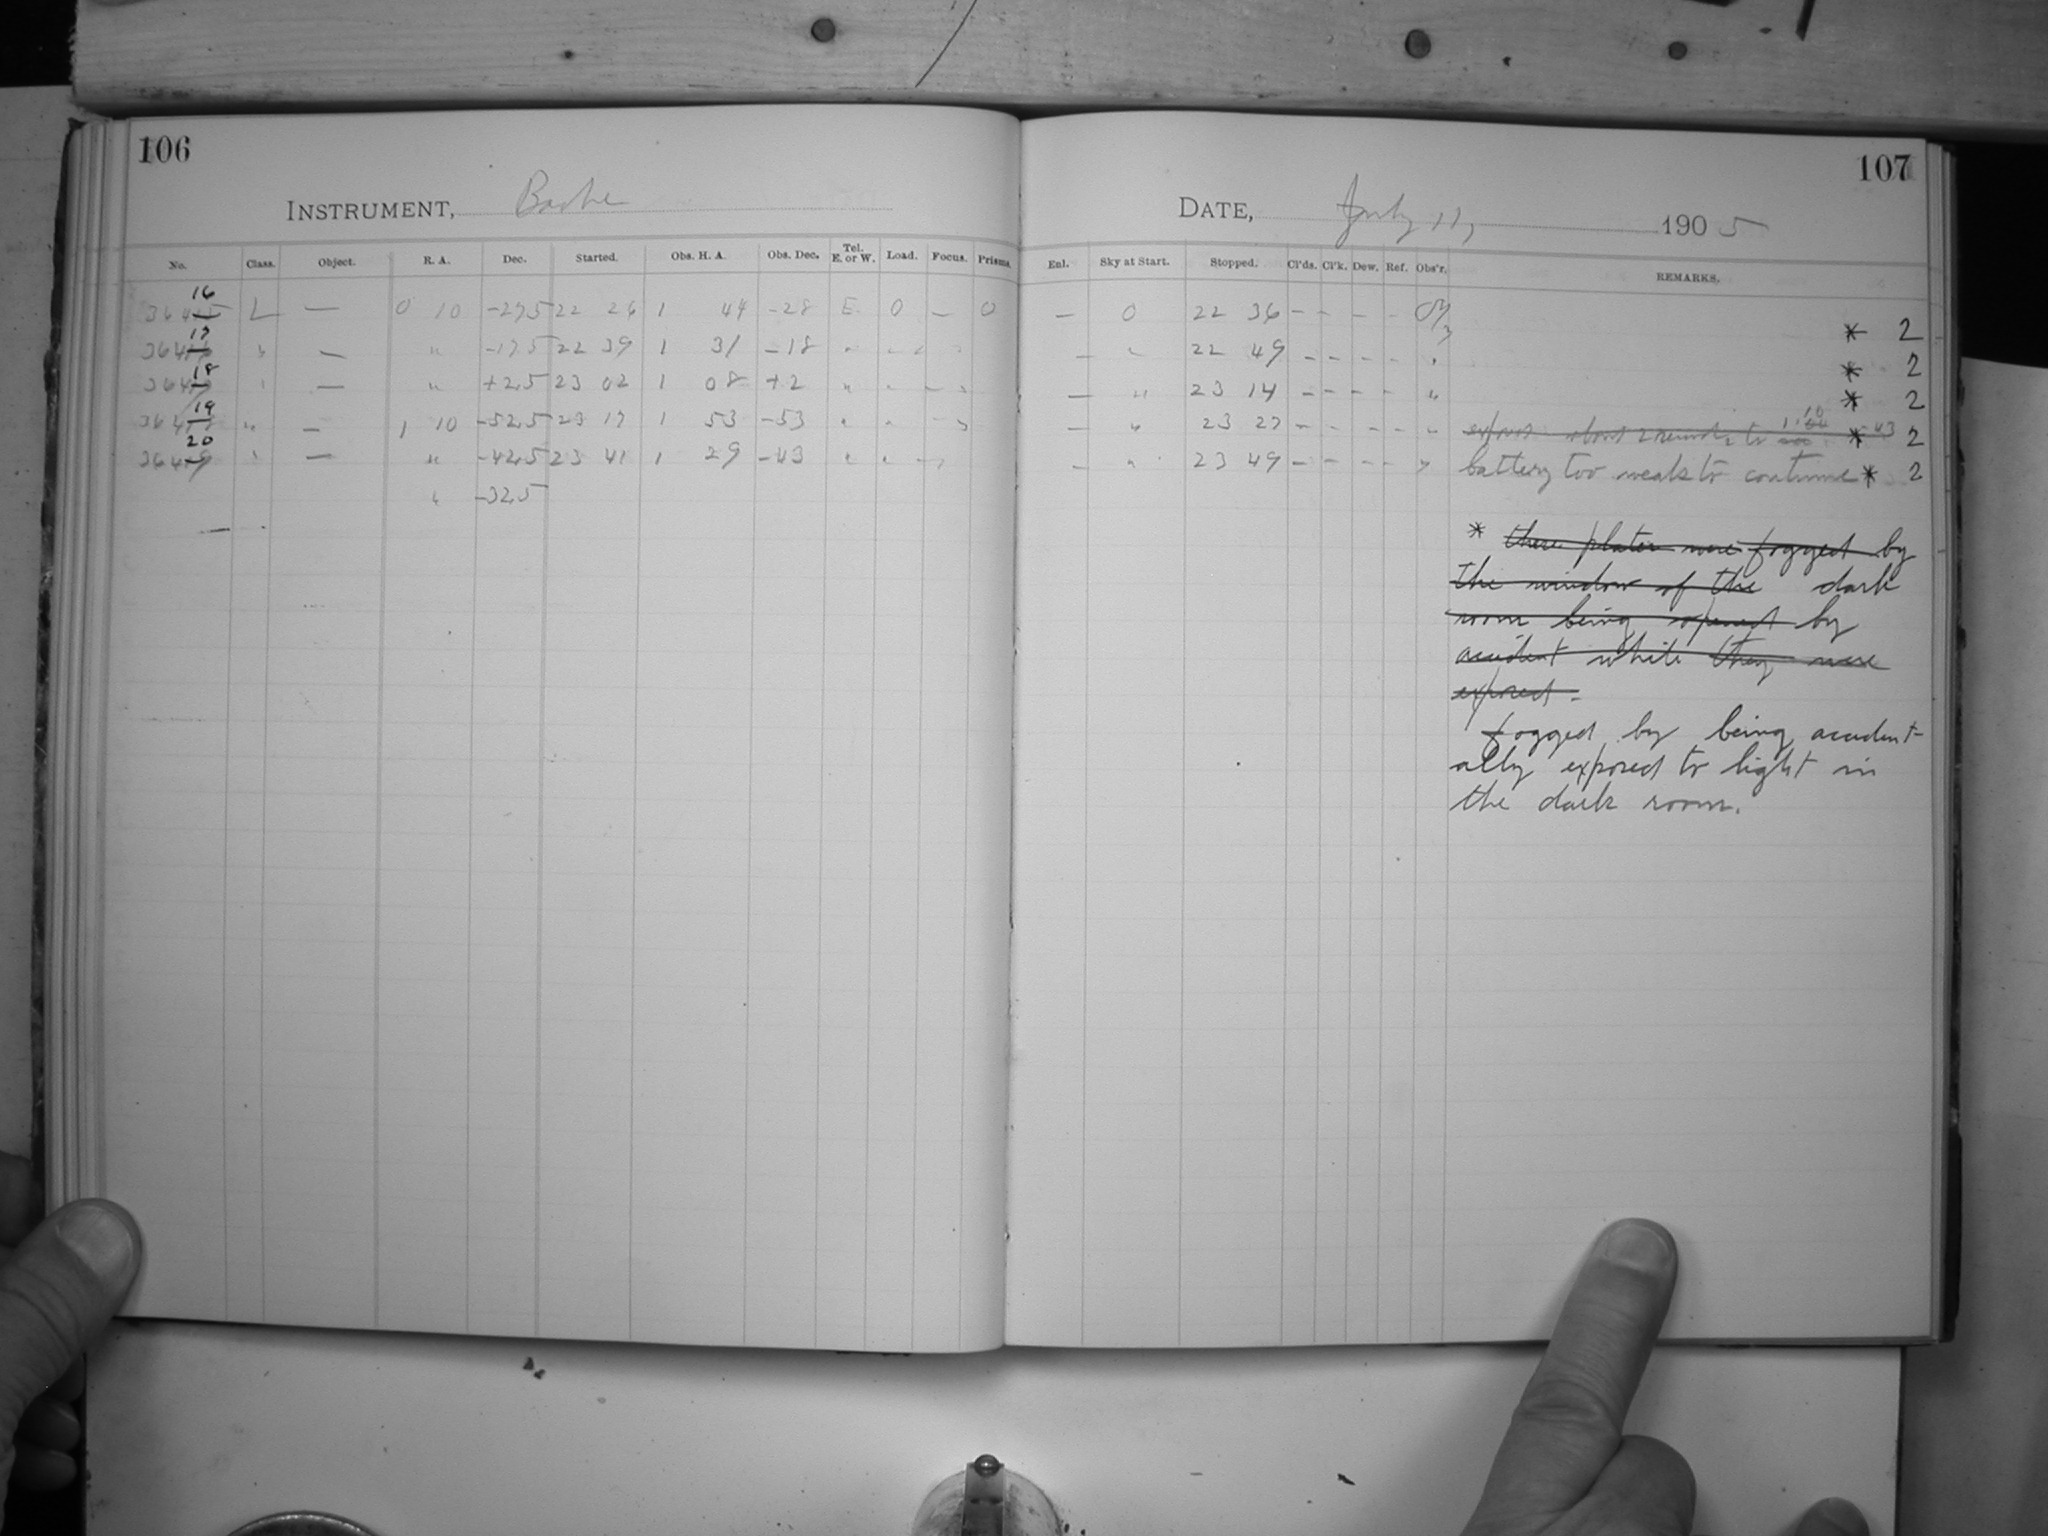 106
107
INSTRUMENT, Bache
DATE, July 11, 1905
No. Class. Object. R. A. Dec. Started. Obs. H. A. Obs. Dec. Tel. E. or W. Load. Focus. Prisms. Enl. Sky at Start. Stopped. Cl'ds. Cl'k. Dew. Ref. Obs'r. REMARKS.
16
36415 L — 0 10 -27.5 22 26 1 44 -28 E. 0 — 0 — 0 22 36 - - - - * 2
17
36416 " — " -17.5 22 39 1 31 -18 " - " 22 49 - - - - " * 2
18
36417 " — " +2.5 23 02 1 08 +2 " " - " — " 23 14 - - - - " * 2
19
36418 " — 1 10 -52.5 23 17 1 53 -53 " " - " — " 23 27 - - - - " about 2 to * 2
20
36419 " — " -42.5 23 41 1 29 -43 " " - " — " 23 49 - - - - " battery too weak to continue * 2
" -32.5
* these plates were fogged by
the window of the dark
room being opened by
accident while they were
exposed.
fogged by being accident-
ally exposed to light in
the dark room.